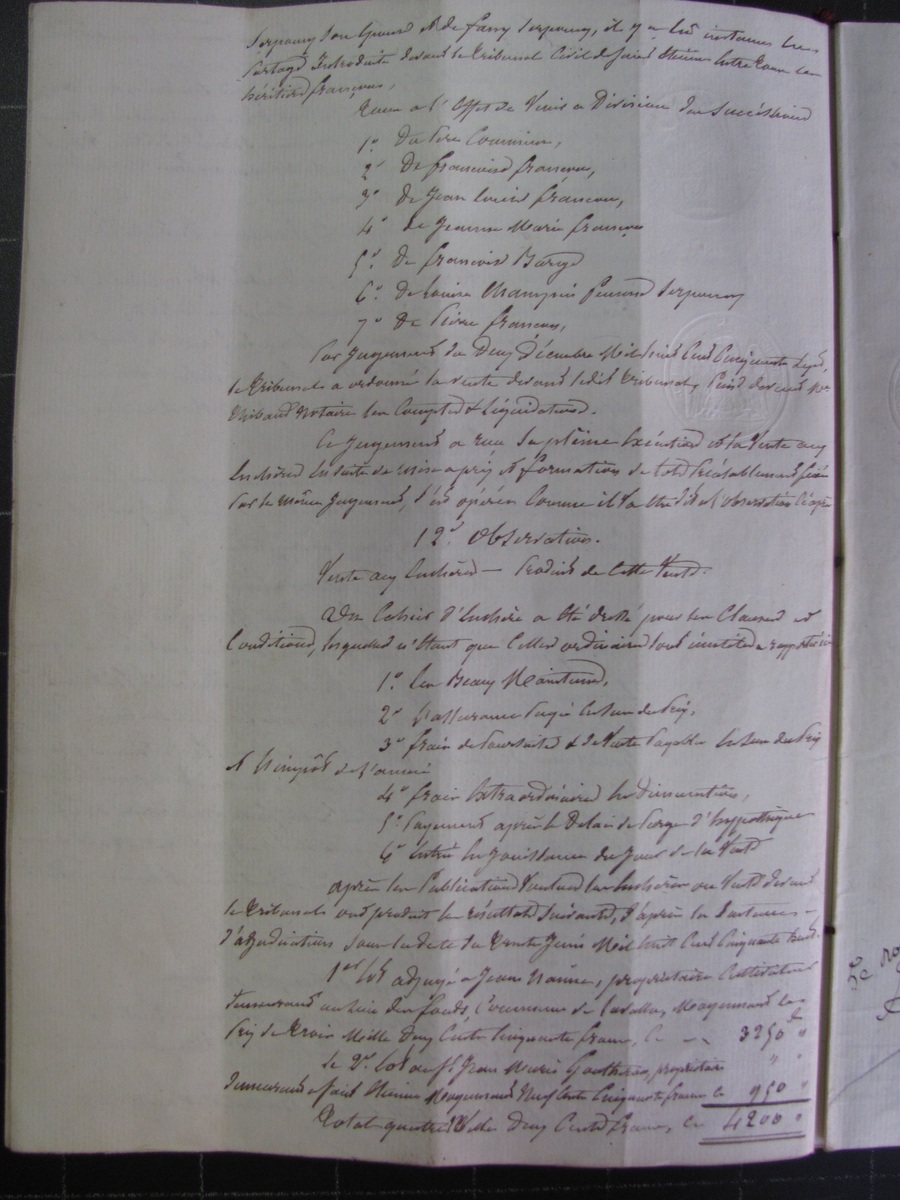 Serpency son Gendre et de fanny Serpency, il y a Eu instance En
Partage Introduite devant le Tribunal Civil de Saint Etienne Entre tous les
héritiers françon,
Tendant à l'Effet de Venir à Division des Successions
1° Du Père Commun,
2° De françoise françon,
3° De Jean Louis françon,
4° De Jeanne Marie françon
5° De françois Barge
6° De Louise Champin femme Serpency
7° De Pierre françon,
Par Jugement du Deux Décembre Mil huit Cent Cinquante Sept,
le Tribunal a ordonné la vente devant ledit Tribunal, Puis devant Me
Thibaud Notaire les Comptes & Liquidations.
Ce Jugement a reçu Sa pleine Exécution et la Vente aux
Enchères Ensuite de mise à prix et formation de lots Préalablement
Par le même Jugement, s'est opérée Comme il Va Etre Dit et observation Ci après
12° Observation.
Vente aux Enchères — Produit de Cette Vente.
Un Cahier d'Enchère a été dressé pour les Clauses et
Conditions, lesquelles n'étant que Celles ordinaires sont inutiles à rapporter ici
1° les Beaux Maintenus,
2° l'assurance Payée En Sus du Prix,
3° frais de Poursuite & de Vente Payables En Sus du Prix
et l'impôt de l'année
4° frais Extraordinaires En Diminution,
5° Payement après le Délai de Purge d'hypothèque
6° Entrée En Jouissance du Jour de la Vente
après les Publications Voulues les Enchères ou Vente devant
le Tribunal ont produit les résultats Suivants, d'après la Sentence
d'adjudication Sous la date du Trente Juin Mil huit Cent Cinquante huit.
1er lot adjugé à Jean Nanne, propriétaire Cultivateur
demeurant au lieu des fonds, Commune de Moyennant le
Prix de Trois Mille Deux Cents Cinquante francs, Ci 3250 "
Le 2e lot au Sr Jean Marie propriétaire " "
demeurant à Saint Etienne Moyennant Neuf Cents Cinquante francs Ci 950 "
Total quatre Mille Deux Cents francs, Ci 4200 "